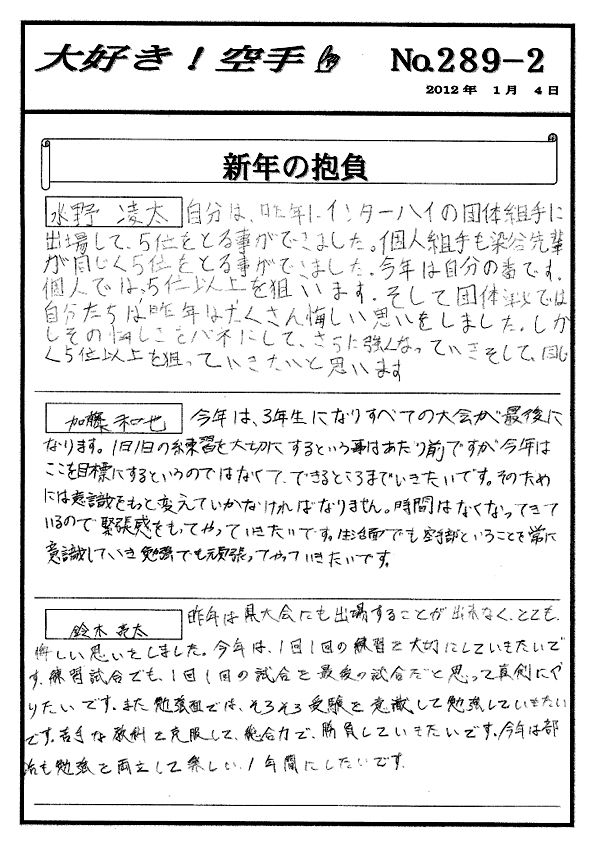 大好き!空手
No.289-2
2012年 1月 4日
新年の抱負
水野 凌太 自分は、昨年にインターハイの団体組手に
出場して、5位をとる事ができました。個人組手も染谷先輩
が同じく5位をとる事ができました。今年は自分の番です。
個人では、5位以上を狙います。そして団体では
自分たちは昨年はたくさん悔しい思いをしました。しか
しその悔しさをバネにして、さらに強くなっていきそして、同じ
く5位以上を狙っていきたいと思います
加藤 和也 今年は、3年生になりすべての大会が最後に
なります。1日1日の練習を大切にするという事はあたり前ですが今年は
ここを目標にするというのではなくて、できるところまでいきたいです。そのため
には意識をもっと変えていかなければなりません。時間はなくなってきて
いるので緊張感をもってやっていきたいです。生活面でも空手部ということを常に
意識していき勉強でも頑張ってやっていきたいです。
鈴木 亮太 昨年は県大会にも出場することが出来なく、とても、
悔しい思いをしました。今年は、1回1回の練習を大切にしていきたいで
す。練習試合でも、1回1回の試合を最後の試合だと思って真剣にや
りたいです。また勉強面では、そろそろ受験を意識して勉強していきたい
です。苦手な教科を克服して、総合力で、勝負していきたいです。今年は部
活も勉強を両立して楽しい1年間にしたいです。